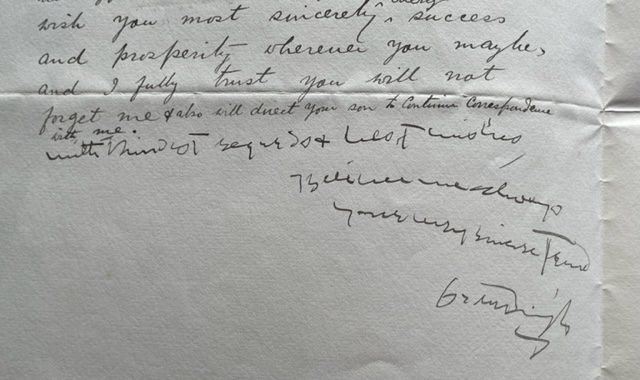 every
wish you most sincerely, success
and prosperity wherever you maybe,
and I fully trust you will not
forget me & also will direct your son to Continue Correspondence
with me.
with kindest regards & best wishes
Believe me always
yours very sincere Friend